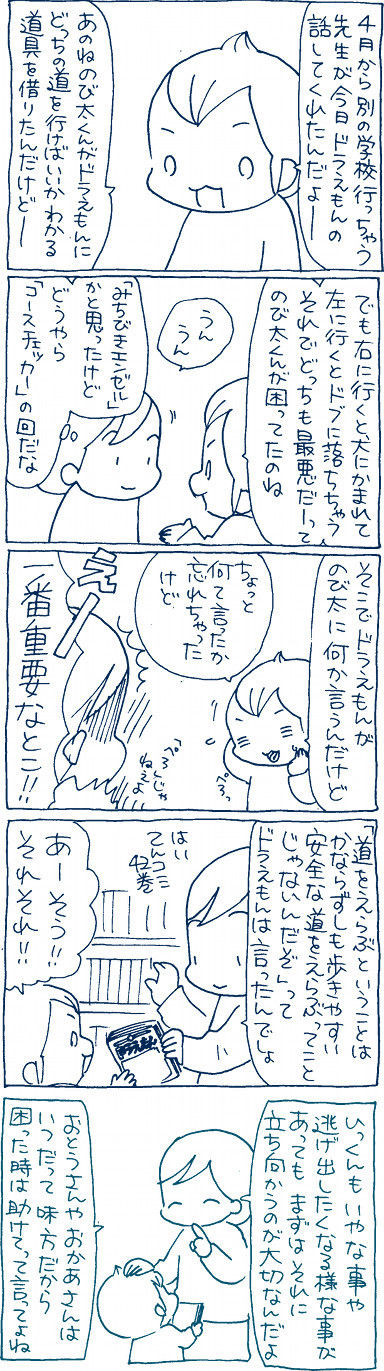 4月から別の学校行っちゃう
先生が今日ドラえもんの
話してくれたんだよー
あのねのび太くんがドラえもんに
どっちの道を行けばいいかわかる
道具を借りたんだけどー
でも右に行くと犬にかまれて
左に行くとドブに落ちちゃう
それでどっちも最悪だーって
のび太くんが困ってたのね
うん
うん
「みちびきエンゼル」
かと思ったけど
どうやら
「コースチェッカー」の回だな
そこでドラえもんが
のび太に何か言うんだけど
ちょっと
何て言ったか
忘れちゃった
けど
ぺろっ
「ぺろっ」じゃ
ねぇよ
え
一番重要なとこ!!
「道をえらぶということは
かならずしも歩きやすい
安全な道をえらぶってこと
じゃないんだぞ」って
ドラえもんは言ったんでしょ
はい
てんコミ
42巻
あーそう!!
それそれ!!
ひっくんもいやな事や
逃げ出したくなる様な事が
あってもまずはそれに
立ち向かうのが大切なんだよ
おとうさんやおかあさんは
いつだって味方だから
困った時は助けてって言ってよね